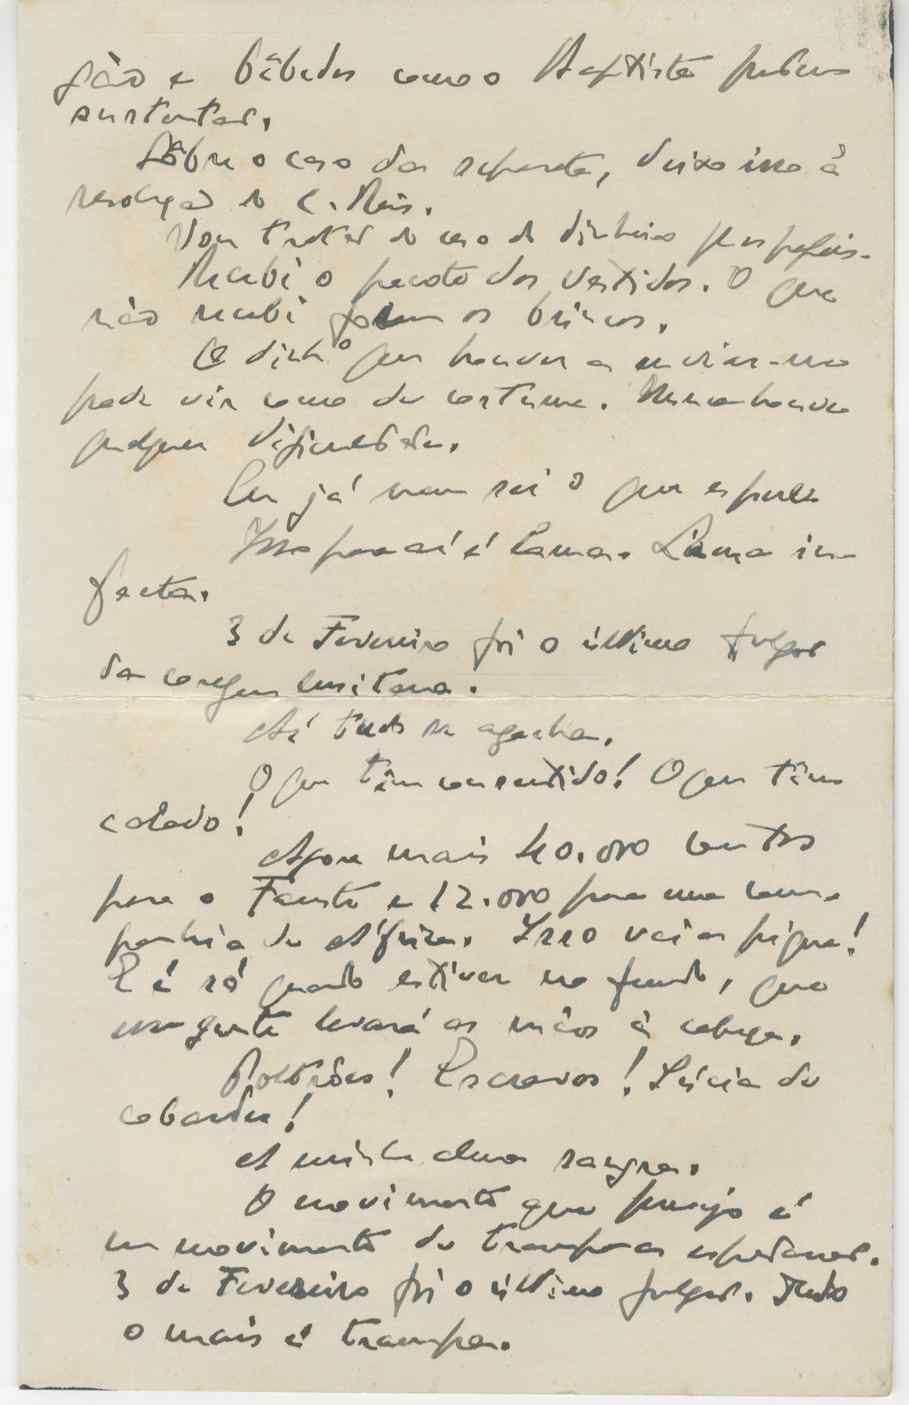 ção e bêbedos como o Baptista podem
sustentar.
Sôbre o caso das separatas, deixo isso à
resolução do C. Reis.
Vou tratar do caso do dinheiro
Recebi o pacote dos vestidos. O que
não recebi foram os brincos.
O dinh.º que houver a enviar-me
pode vir como de costume. Nunca houve
qualquer dificuldade.
Eu já nem sei o que espere
Isso por aí é lama. Lama in-
fecta.
3 de Fevereiro foi o último fulgor
da coragem lusitana.
Aí tudo se agacha.
O que têm consentido! O que têm
calado!
Agora mais 40.000 contos
para o Fausto e 12.000 para uma com-
panhia de Africa. Isso vai a pique!
E é só quando estiver no fundo, que
essa gente levará as mãos à cabeça.
Poltrões! Escravos! Súcia de
cobardes!
A minha alma sangra.
O movimento que vejo é
um movimento de trampa a espadanar.
3 de Fevereiro foi o último fulgor. Tudo
o mais é trampa.